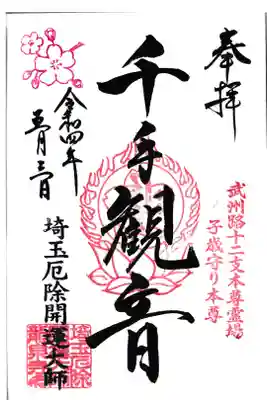 奉拝
武州路十二支本尊霊場
子歳守り本尊
千手観音
令和四年
五月三日
埼玉厄除開運大師